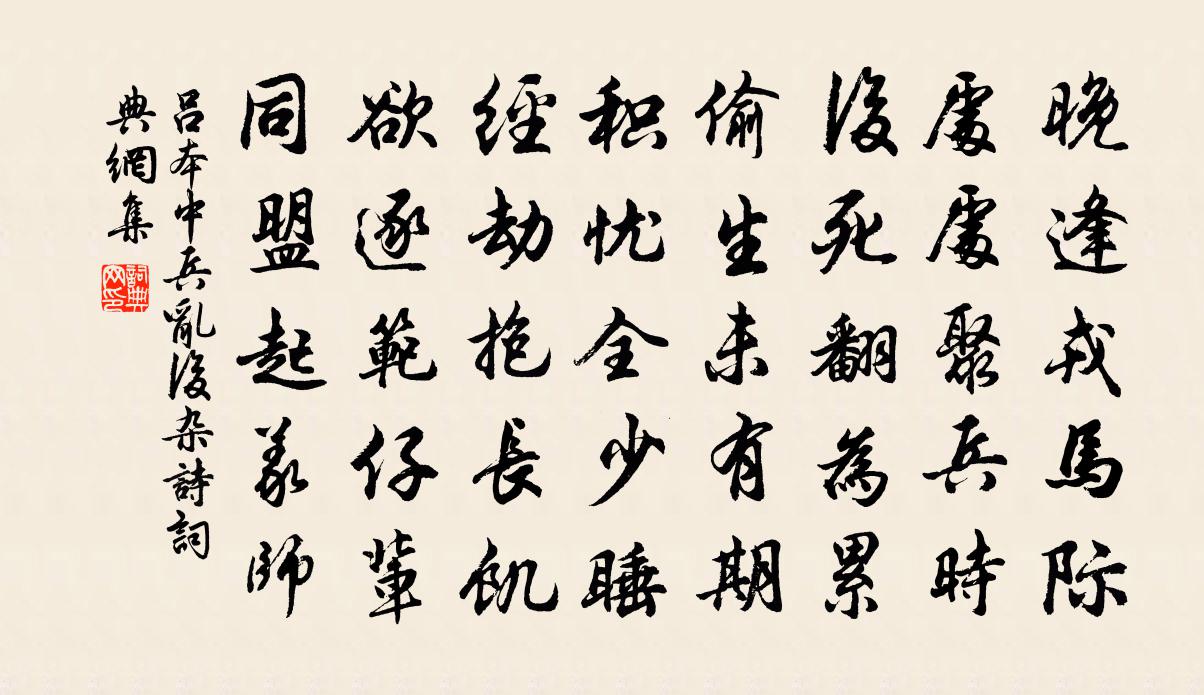 晚逢戎馬际
處處聚兵時
後死翻為累
偷生未有期
积忧全少睡
經劫抱長飢
欲逐範仔輩
同盟起義師
吕本中兵亂後杂詩詞
典網集
詞典
网印